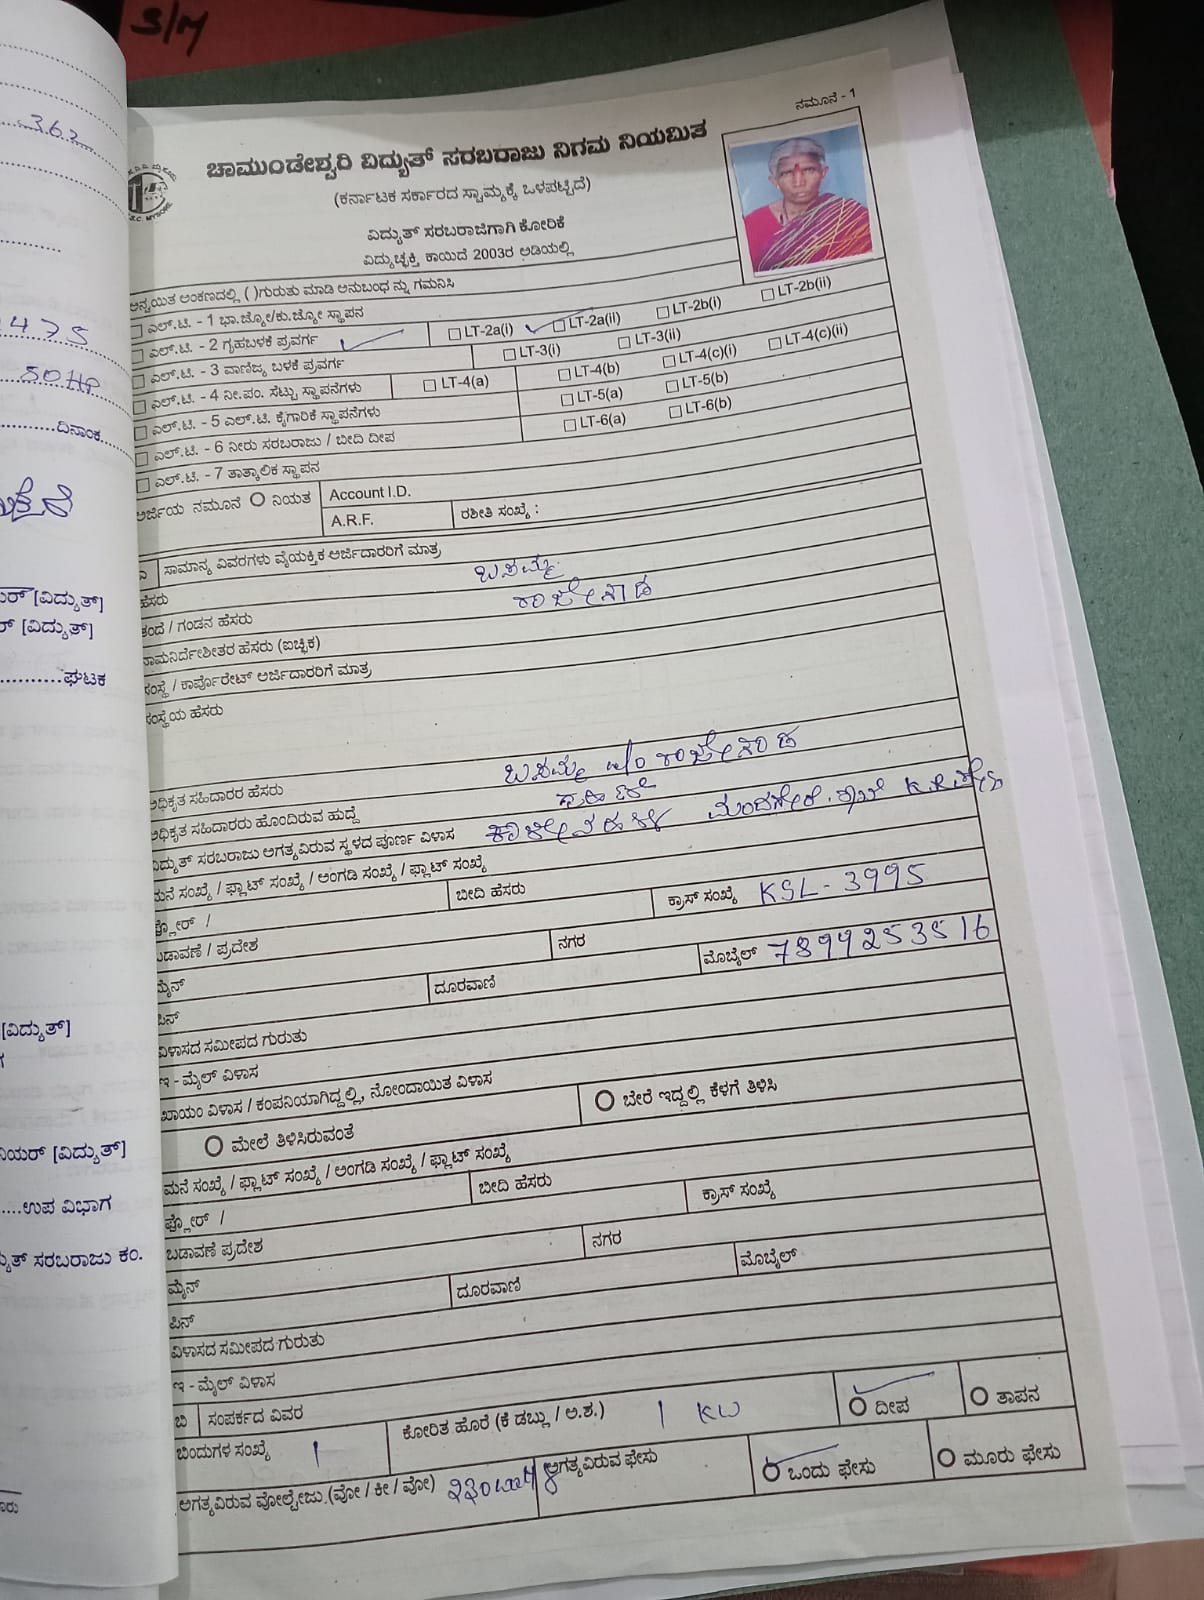 S/M
362
475
50HP
ದಿನಾಂಕ
[ವಿದ್ಯುತ್]
[ವಿದ್ಯುತ್]
ಘಟಕ
[ವಿದ್ಯುತ್]
ನಿಯರ್ [ವಿದ್ಯುತ್]
ಉಪ ವಿಭಾಗ
ಸರಬರಾಜು ಕಂ.
ನಮೂನೆ - 1
ಚಾಮುಂಡೇಶ್ವರಿ ವಿದ್ಯುತ್ ಸರಬರಾಜು ನಿಗಮ ನಿಯಮಿತ
(ಕರ್ನಾಟಕ ಸರ್ಕಾರದ ಸ್ವಾಮ್ಯಕ್ಕೆ ಒಳಪಟ್ಟಿದೆ)
ವಿದ್ಯುತ್ ಸರಬರಾಜಿಗಾಗಿ ಕೋರಿಕೆ
ವಿದ್ಯುಚ್ಛಕ್ತಿ ಕಾಯಿದೆ 2003ರ ಅಡಿಯಲ್ಲಿ
ಅನ್ವಯಿತ ಅಂಕಣದಲ್ಲಿ ( )ಗುರುತು ಮಾಡಿ ಅನುಬಂಧ ನ್ನು ಗಮನಿಸಿ
ಎಲ್.ಟಿ. - 1 ಭಾ.ಜ್ಯೋ/ಕು.ಜ್ಯೋ ಸ್ಥಾಪನ
ಎಲ್.ಟಿ. - 2 ಗೃಹಬಳಕೆ ಪ್ರವರ್ಗ LT-2a(i) LT-2a(ii) LT-2b(i) LT-2b(ii)
ಎಲ್.ಟಿ. - 3 ವಾಣಿಜ್ಯ ಬಳಕೆ ಪ್ರವರ್ಗ LT-3(i) LT-3(ii)
ಎಲ್.ಟಿ. - 4 ನೀ.ಪಂ. ಸೆಟ್ಟು ಸ್ಥಾಪನೆಗಳು LT-4(a) LT-4(b) LT-4(c)(i) LT-4(c)(ii)
ಎಲ್.ಟಿ. - 5 ಎಲ್.ಟಿ. ಕೈಗಾರಿಕೆ ಸ್ಥಾಪನೆಗಳು LT-5(a) LT-5(b)
ಎಲ್.ಟಿ. - 6 ನೀರು ಸರಬರಾಜು / ಬೀದಿ ದೀಪ LT-6(a) LT-6(b)
ಎಲ್.ಟಿ. - 7 ತಾತ್ಕಾಲಿಕ ಸ್ಥಾಪನ
ಅರ್ಜಿಯ ನಮೂನೆ ನಿಯತ Account I.D.
A.R.F. ರಶೀತಿ ಸಂಖ್ಯೆ :
ಸಾಮಾನ್ಯ ವಿವರಗಳು ವೈಯಕ್ತಿಕ ಅರ್ಜಿದಾರರಿಗೆ ಮಾತ್ರ
ಹೆಸರು ಬಸಮ್ಮ
ತಂದೆ / ಗಂಡನ ಹೆಸರು ರಾಜೇಗೌಡ
ನಾಮನಿರ್ದೇಶೀತರ ಹೆಸರು (ಐಚ್ಛಿಕ)
ಸಂಸ್ಥೆ / ಕಾರ್ಪೊರೇಟ್ ಅರ್ಜಿದಾರರಿಗೆ ಮಾತ್ರ
ಸಂಸ್ಥೆಯ ಹೆಸರು
ಅಧಿಕೃತ ಸಹಿದಾರರ ಹೆಸರು ಬಸಮ್ಮ w/o ರಾಜೇಗೌಡ
ಅಧಿಕೃತ ಸಹಿದಾರರು ಹೊಂದಿರುವ ಹುದ್ದೆ
ವಿದ್ಯುತ್ ಸರಬರಾಜು ಅಗತ್ಯವಿರುವ ಸ್ಥಳದ ಪೂರ್ಣ ವಿಳಾಸ
ಮನೆ ಸಂಖ್ಯೆ / ಫ್ಲಾಟ್ ಸಂಖ್ಯೆ / ಅಂಗಡಿ ಸಂಖ್ಯೆ / ಫ್ಲಾಟ್ ಸಂಖ್ಯೆ
ಫ್ಲೋರ್ / ಬೀದಿ ಹೆಸರು ಕ್ರಾಸ್ ಸಂಖ್ಯೆ KSL-3995
ಬಡಾವಣೆ / ಪ್ರದೇಶ ನಗರ
ಮೈನ್ ದೂರವಾಣಿ ಮೊಬೈಲ್ 7899253516
ಪಿನ್
ವಿಳಾಸದ ಸಮೀಪದ ಗುರುತು
ಇ - ಮೈಲ್ ವಿಳಾಸ
ಖಾಯಂ ವಿಳಾಸ / ಕಂಪನಿಯಾಗಿದ್ದಲ್ಲಿ, ನೋಂದಾಯಿತ ವಿಳಾಸ
ಮೇಲೆ ತಿಳಿಸಿರುವಂತೆ ಬೇರೆ ಇದ್ದಲ್ಲಿ ಕೆಳಗೆ ತಿಳಿಸಿ
ಮನೆ ಸಂಖ್ಯೆ / ಫ್ಲಾಟ್ ಸಂಖ್ಯೆ / ಅಂಗಡಿ ಸಂಖ್ಯೆ / ಫ್ಲಾಟ್ ಸಂಖ್ಯೆ
ಫ್ಲೋರ್ / ಬೀದಿ ಹೆಸರು ಕ್ರಾಸ್ ಸಂಖ್ಯೆ
ಬಡಾವಣೆ ಪ್ರದೇಶ ನಗರ
ಮೈನ್ ದೂರವಾಣಿ ಮೊಬೈಲ್
ಪಿನ್
ವಿಳಾಸದ ಸಮೀಪದ ಗುರುತು
ಇ - ಮೈಲ್ ವಿಳಾಸ
ಬಿ ಸಂಪರ್ಕದ ವಿವರ
ಬಿಂದುಗಳ ಸಂಖ್ಯೆ 1 ಕೋರಿತ ಹೊರೆ (ಕೆ ಡಬ್ಲು / ಅ.ಶ.) 1 KW ದೀಪ ತಾಪನ
ಅಗತ್ಯವಿರುವ ವೋಲ್ಟೇಜು.(ವೋ / ಕೀ / ವೋ) ಅಗತ್ಯವಿರುವ ಫೇಸು ಒಂದು ಫೇಸು ಮೂರು ಫೇಸು